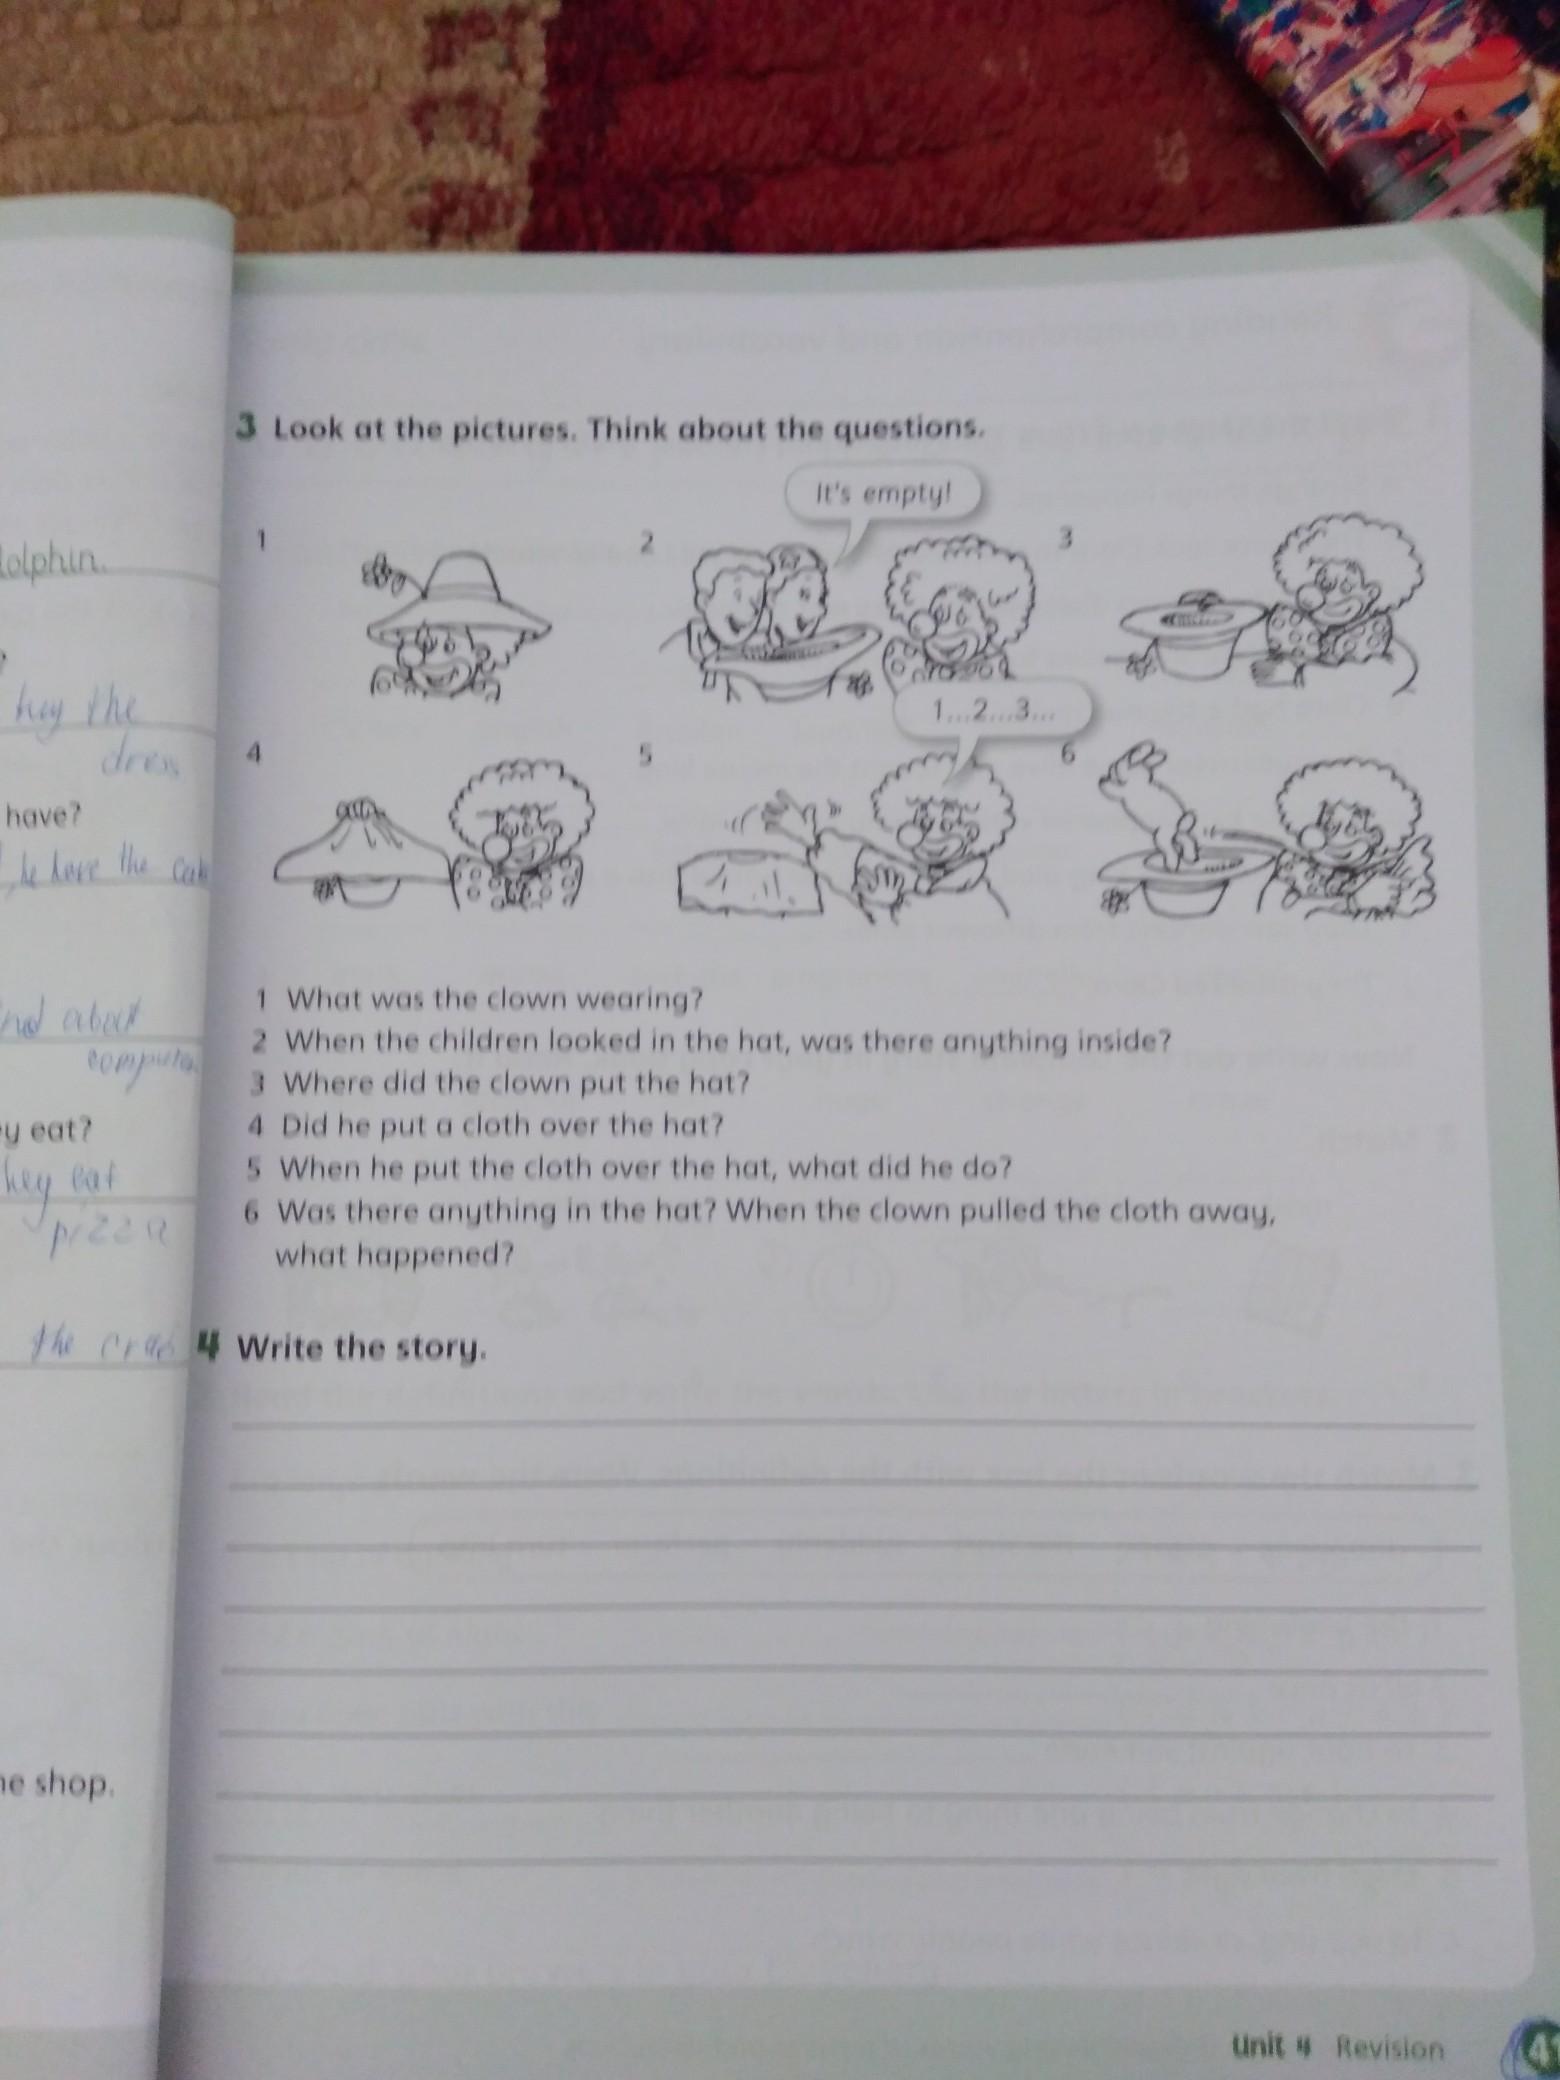 dolphin.
?
hey the
dress
have?
he have the cake
and about
computer
ey eat?
hey eat
pizza
the crab
he shop.
3 Look at the pictures. Think about the questions.
It's empty!
1
2
3
1...2...3...
4
5
6
1 What was the clown wearing?
2 When the children looked in the hat, was there anything inside?
3 Where did the clown put the hat?
4 Did he put a cloth over the hat?
5 When he put the cloth over the hat, what did he do?
6 Was there anything in the hat? When the clown pulled the cloth away,
what happened?
4 Write the story.
Unit 4 Revision